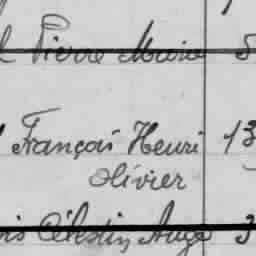 Pierre Marie 5
François Henri 13
Olivier
Célestin Auge 3